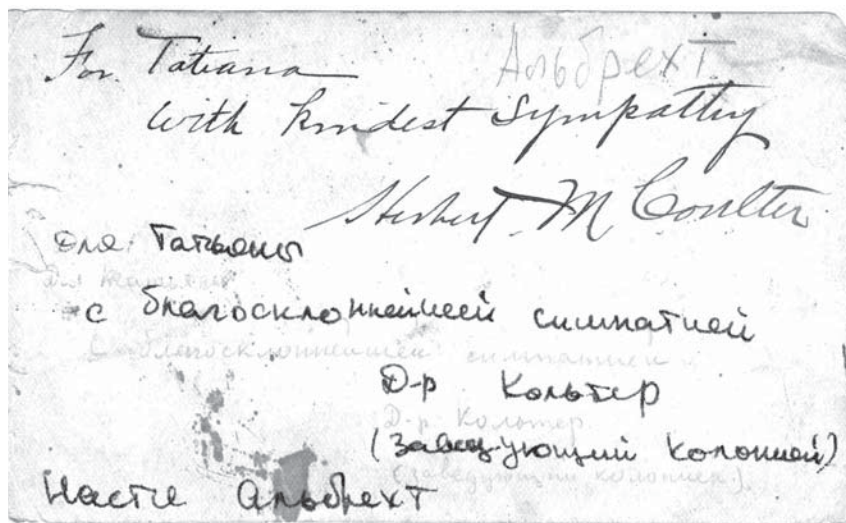 For Tatiana
Альбрехт
with kindest sympathy
Herbert M Coulter
Для Татьяны
Для Татьяны
с благосклоннейшей симпатией
С благосклоннейшей симпатией
Д-р Кольтер
Д-р Кольтер
(заведующий колонией)
(заведующий колонией)
Насте Альбрехт